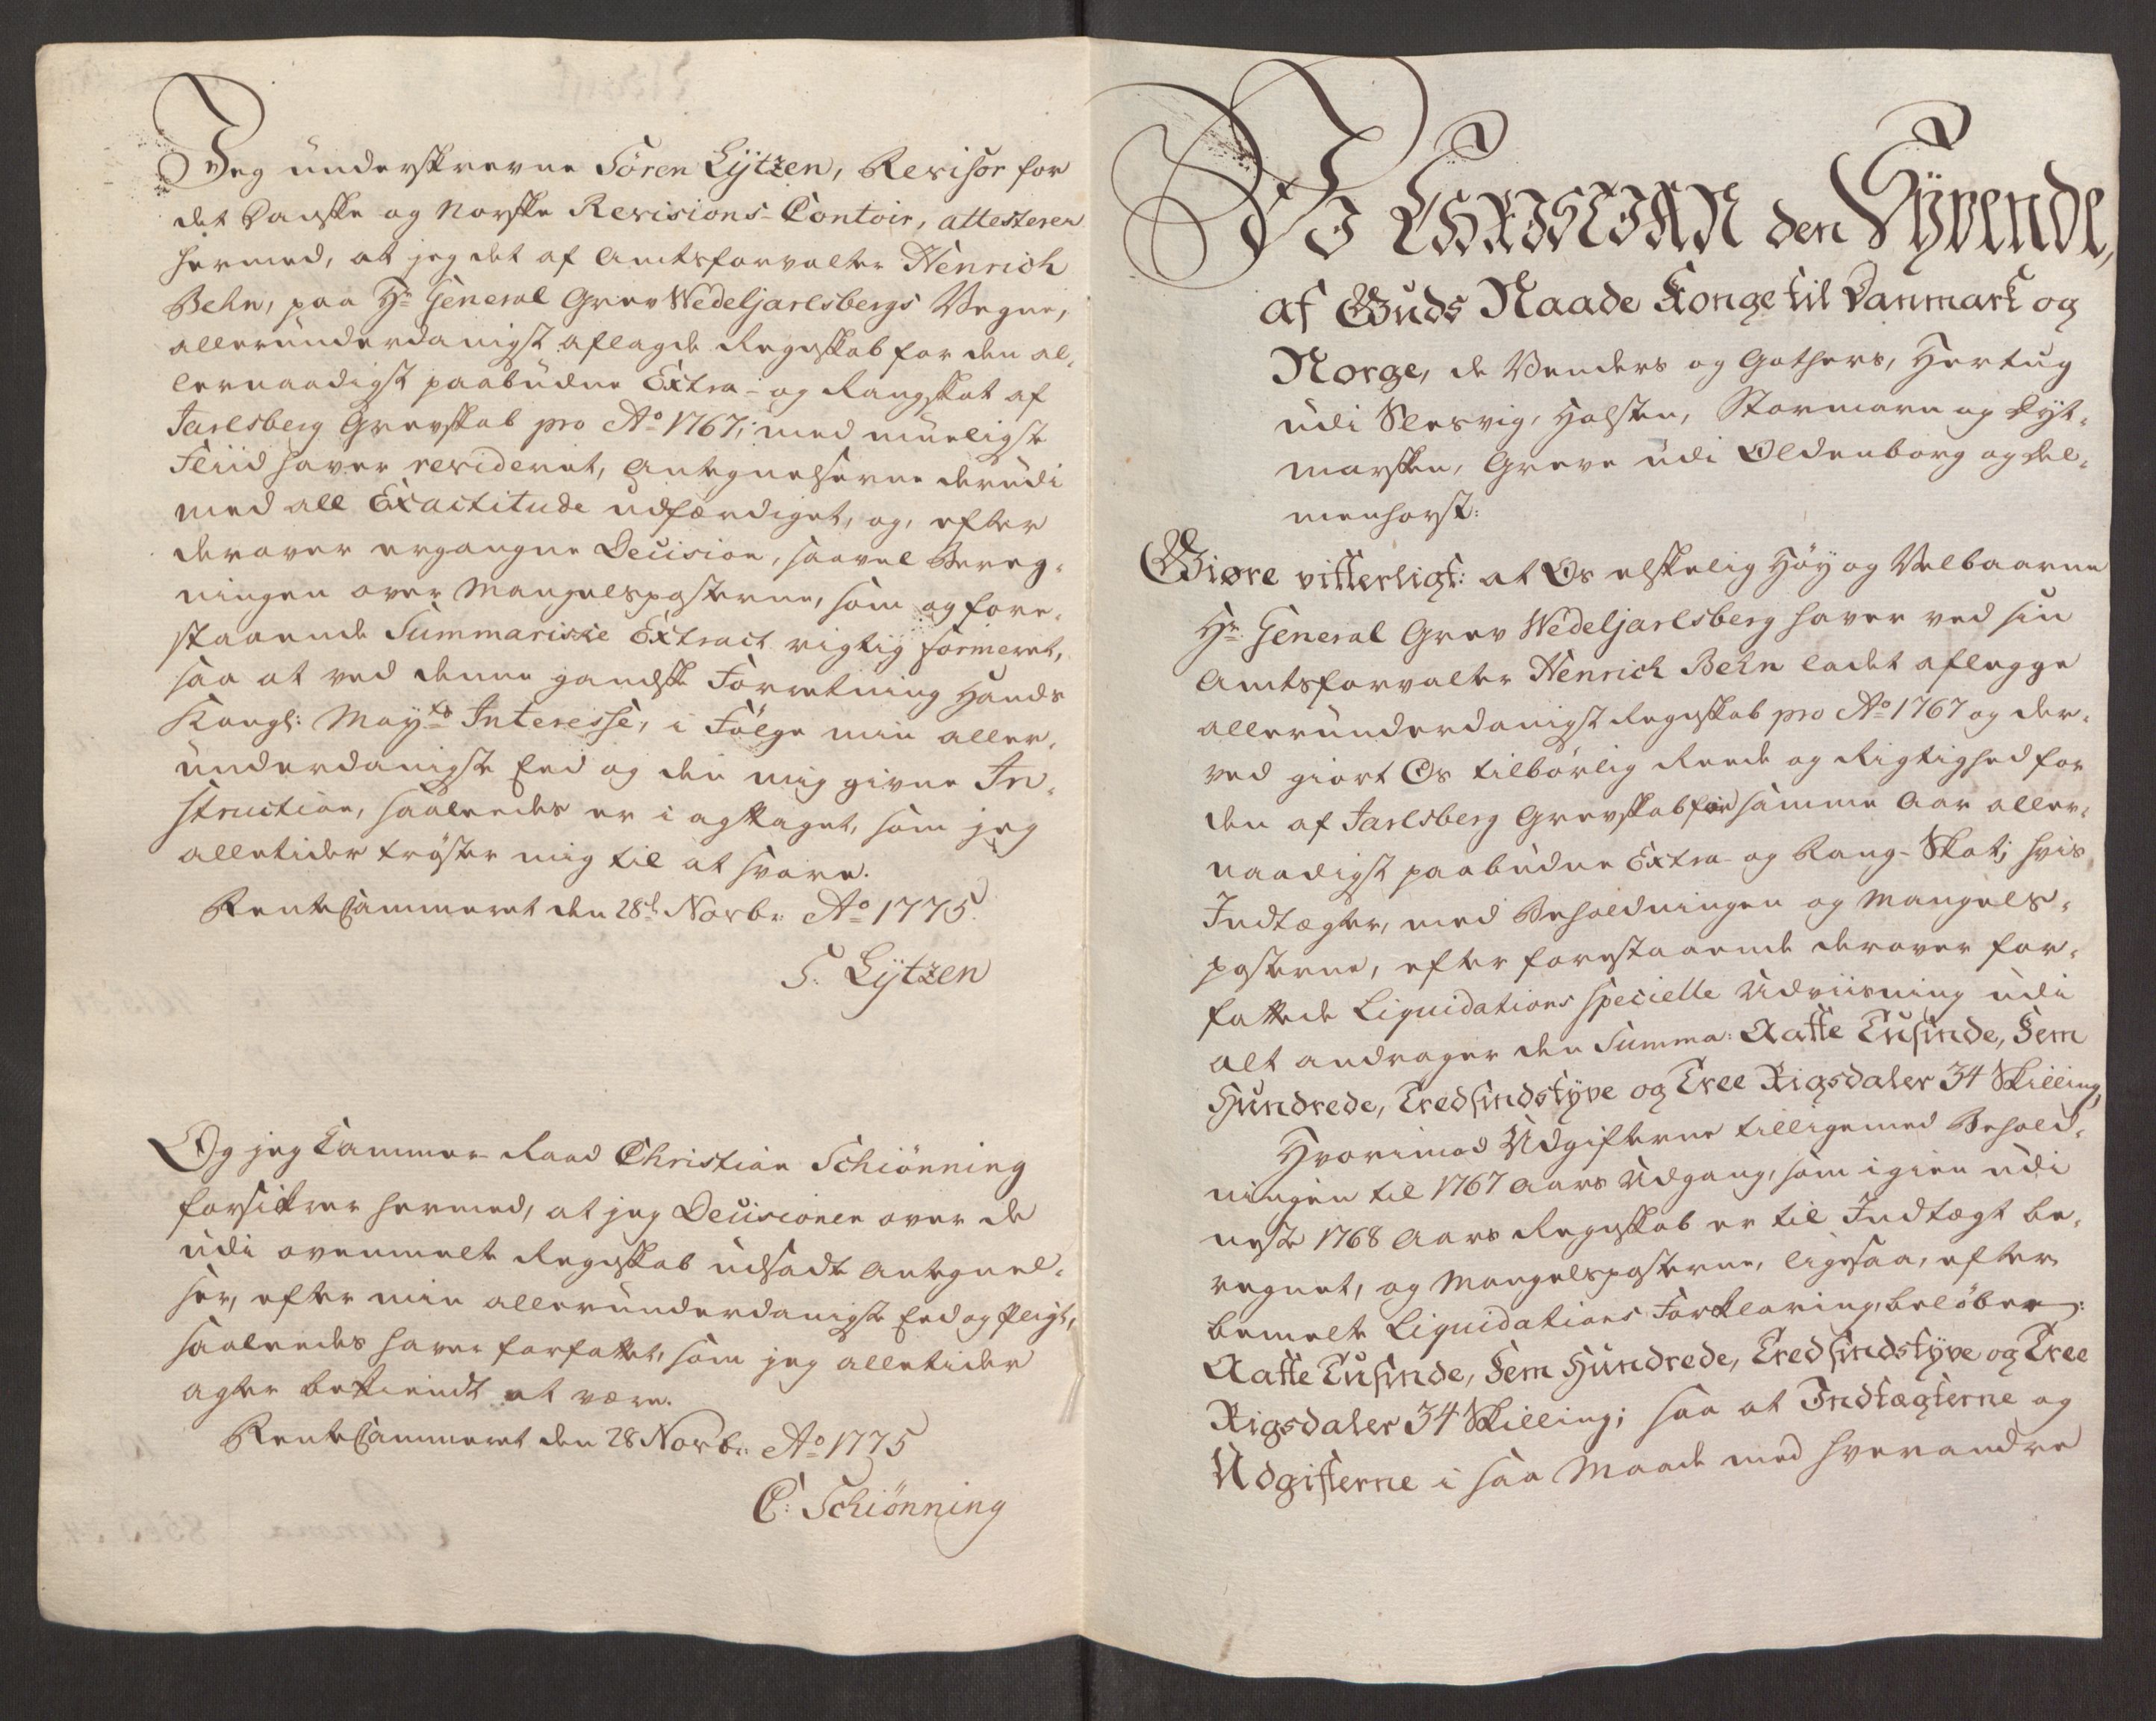 Jeg underskrevne Sören Lÿtzen, Revisor for
det Danske og Norske Revisions-Contoir, attesterer
hermed, at jeg det af Amtsforvalter Henrich
Behn, paa Hr. General Grev Wedeljarlsbergs Vegne,
allerunderdanigst aflagde Regnskab for den al-
lernaadigst paabudne Extra- og Rangskat af
Jarlsberg Grevskab pro Ao. 1767, med mueligste
Fliid haver revideret, Antegnelserne derudi
med all Exactitude udfærdiget, og, efter
derover ergangne Decision, saavel Bereg-
ningen over Mangelsposterne, som og fore-
staaende Summariske Extract rigtig formeret,
saa at ved denne gandske Forretning Hands
Kongl: Mayts Interesse, i Fölge min aller-
underdanigste Eed og den mig givne In-
struction, saaledes er i agttaget, som jeg
alletider tröster mig til at svare.
RenteCammeret den 28d Novbr: Ao. 1775.
S. Lÿtzen
Og jeg Cammer-Raad Christian Schiönning
forsikrer hermed, at jeg Decisionen over de
udi ovenmelte Regnskab udsadte Antegnel-
ser, efter min allerunderdanigste Eed og Pligt,
saaledes haver forfattet, som jeg alletider
agter bekiendt at være.
RenteCammeret den 28 Novbr: Ao. 1775
C: Schiönning
VI CHRISTIAN den Syvende,
af Guds Naade Konge til Danmark og
Norge, de Venders og Gothers, Hertug
udi Slesvig, Holsten, Stormarn og Dyt-
marsken, Greve udi Oldenborg og Del-
menhorst:
Giøre vitterligt: at Os elskelig Høy og Velbaarne
Hr. General Grev Wedeljarlsberg haver ved sin
Amtsforvalter Henrich Behn ladet aflegge
allerunderdanigst Regnskab pro Ao. 1767 og der-
ved giort Os tilbörlig Reede og Rigtighed for
den af Jarlsberg Grevskab for samme Aar aller-
naadigst paabudne Extra- og Rang-Skat; hvis
Indtægter, med Beholdningen og Mangels-
posterne, efter forestaaende derover for-
fattede Liquidations specielle Udviisning udi
alt andrager den Summa: Aatte Tusinde, Fem
Hundrede, Tredsindstyve og Tree Rigsdaler 34 Skilling,
Hvorimod Udgifterne tilligemed Behold-
ningen til 1767 Aars Udgang, som igien udi
neste 1768 Aars Regnskab er til Indtægt be-
regnet, og Mangelsposterne, ligesaa, efter
bemelte Liquidations Forklaring, belöber:
Aatte Tusinde, Fem Hundrede, Tredsindstyve og Tree
Rigsdaler 34 Skilling; saa at Indtægterne og
Udgifterne i saa Maade med hverandre